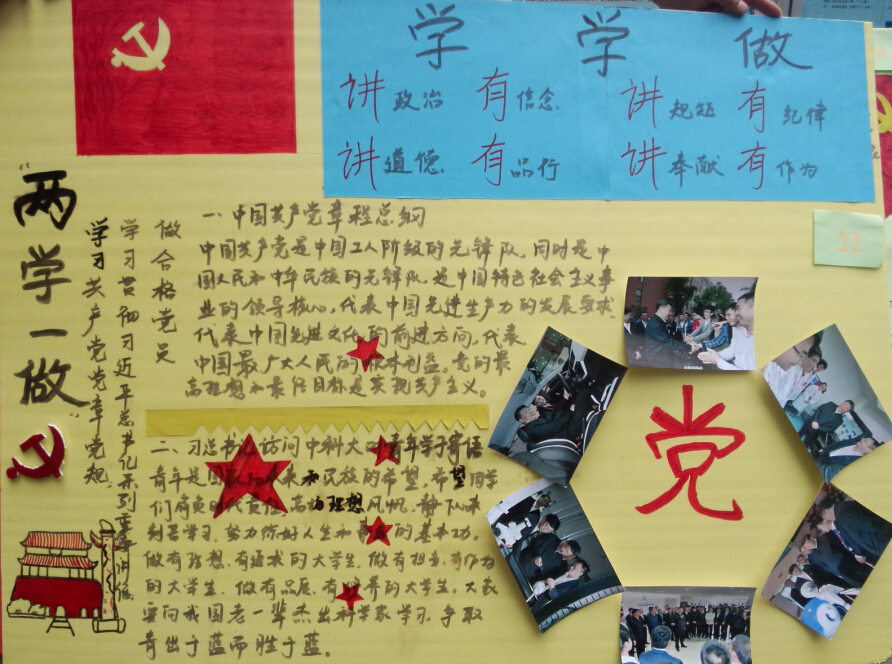 学 学 做
讲政治 有信念 讲规矩 有纪律
讲道德 有品行 讲奉献 有作为
22
“两学一做”
学习共产党党章党规
学习贯彻习近平总书记系列重要讲话
做合格党员
一、中国共产党章程总纲
中国共产党是中国工人阶级的先锋队,同时是中
国人民和中华民族的先锋队,是中国特色社会主义事
业的领导核心,代表中国先进生产力的发展要求,
代表中国先进文化的前进方向,代表
中国最广大人民的根本利益。党的最
高理想和最终目标是实现共产主义。
二、习总书记访问中科大 青年学子寄语
青年是国家 未来和民族的希望,希望同学
们肩负 时代责任,高扬理想风帆,静下心来
刻苦学习,努力练好人生和 的基本功。
做有理想、有追求的大学生,做有担当、有作为
的大学生,做有品质、有 养的大学生。大家
要向我国老一辈杰出科学家学习,争取
青出于蓝而胜于蓝。
党